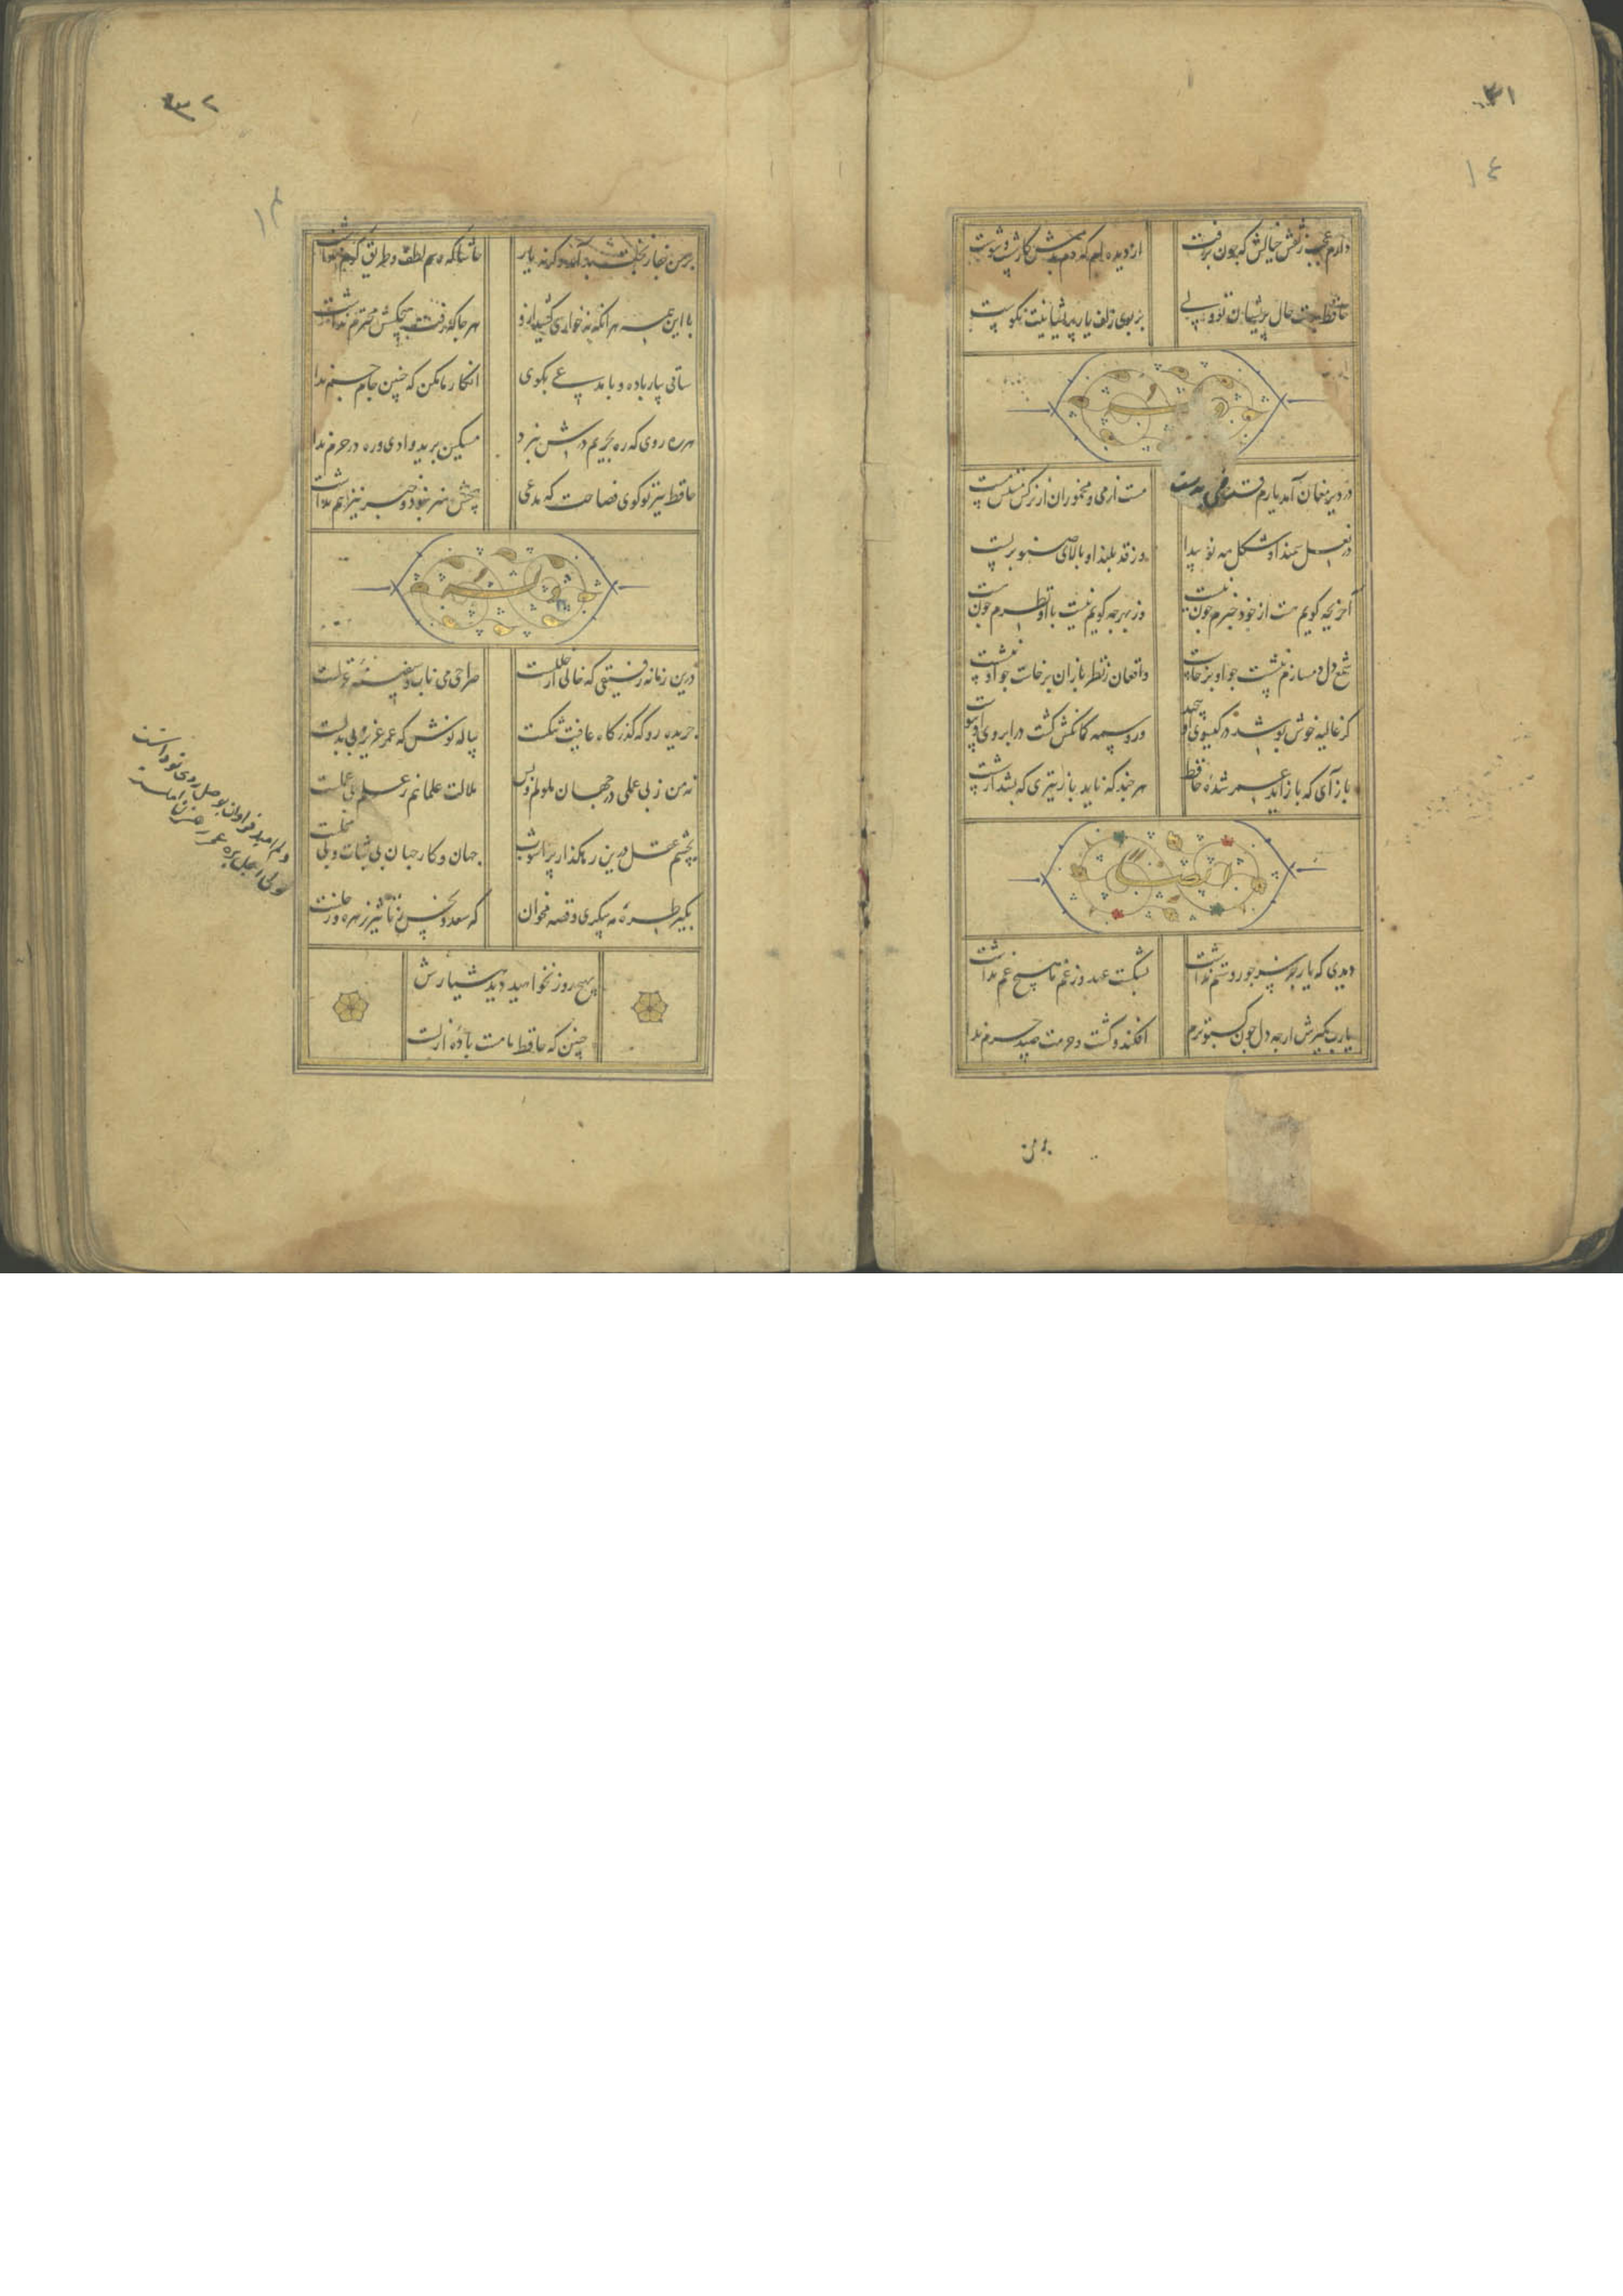 ۳۱
۱٤
دارم عجب ز نقش خیالش که چون برفت
از دیده ام که دم بدمش کار شست و شوست
حافظ بدست حال پریشان تو ولی
بر بوی زلف یار پریشانیت نکوست
در دیر مغان آمد یارم قدحی در دست
مست از می و میخواران از نرگس مستش مست
در نعل سمند او شکل مه نو پیدا
وز قد بلند او بالای صنوبر پست
آخر بچه گویم هست از خود خبرم چون نیست
وز بهر چه گویم نیست با او نظرم چون هست
شمع دل دمسازم بنشست چو او برخاست
و افغان ز نظر بازان برخاست چو او بنشست
گر غالیه خوش بو شد در گیسوی او پیچید
ور وسمه کمانکش گشت در ابروی او پیوست
باز آی که باز آید عمر شده حافظ
هر چند که ناید باز تیری که بشد از شست
ایضا
دیدی که یار جز سر جور و ستم نداشت
بشکست عهد وز غم ما هیچ غم نداشت
یارب مگیرش ار چه دل چون کبوترم
افکند و کشت و حرمت صید حرم ندا
بر من
۳۲
۱۴
بر من جفا ز بخت بد آمد وگرنه یار
حاشا که رسم لطف و طریق کرم نداشت
با این همه هر آنکه نه خواری کشید ازو
هر جا که رفت هیچکسش محترم نداشت
ساقی بیار باده و با مدعی بگوی
انکار ما مکن که چنین جام جم ندا
هر ره روی که ره بحریم درش نبرد
مسکین برید وادی و ره در حرم ندا
حافظ ببر تو گوی فصاحت که مدعی
هیچش هنر نبود و خبر نیز هم نداشت
درین زمانه رفیقی که خالی از خللست
صراحی می ناب و سفینه غزلست
جریده رو که گذرگاه عافیت تنگست
پیاله نوش که عمر عزیز بی بدلست
نه من ز بی عملی در جهان ملولم و بس
ملالت علما هم ز علم بی عملست
بچشم عقل درین رهگذار پر آشوب
جهان و کار جهان بی ثبات و بی محلست
بگیر طره مه پیکری و قصه مخوان
که سعد و نحس ز تاثیر زهره و زحلست
بهیچ روز نخواهید دید هشیارش
چنین که حافظ ما مست باده ازلست
دلم امید فراوان بوصل روی تو داشت
ولی اجل بره عمر رهزن املست